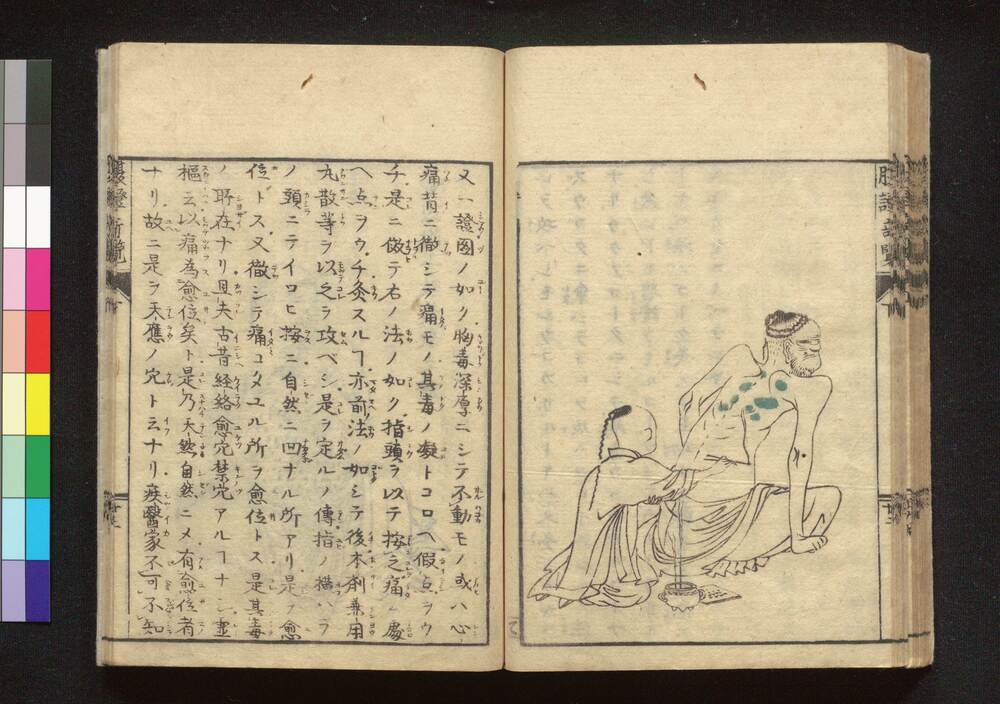 又一證圖ノ如ク胸毒深厚ニシテ不動モノ或ハ心
痛背ニ徹シテ痛モノ其毒ノ凝トコロヘ假点ヲウ
チ是ニ倣テ右ノ法ノ如ク指頭ヲ以テ按之痛ム處
ヘ点ヲウチ灸スルヿ亦前法ノ如シテ後本剤兼用
丸散等ヲ以之ヲ攻ベシ是ヲ定ルノ傳指ノ横ハラ
ノ頭ニテイロヒ按ニ自然ニ凹ナル所アリ是ヲ愈
位トス又徹シテ痛コタユル所ヲ愈位トス是其毒
ノ所在ナリ且夫古昔経絡愈穴禁穴アルヿナシ霊
樞云以痛為愈位矣ト是乃天然自然ニメ有愈位者
ナリ故ニ是ヲ天應ノ穴ト云ナリ疾醫家不可不知